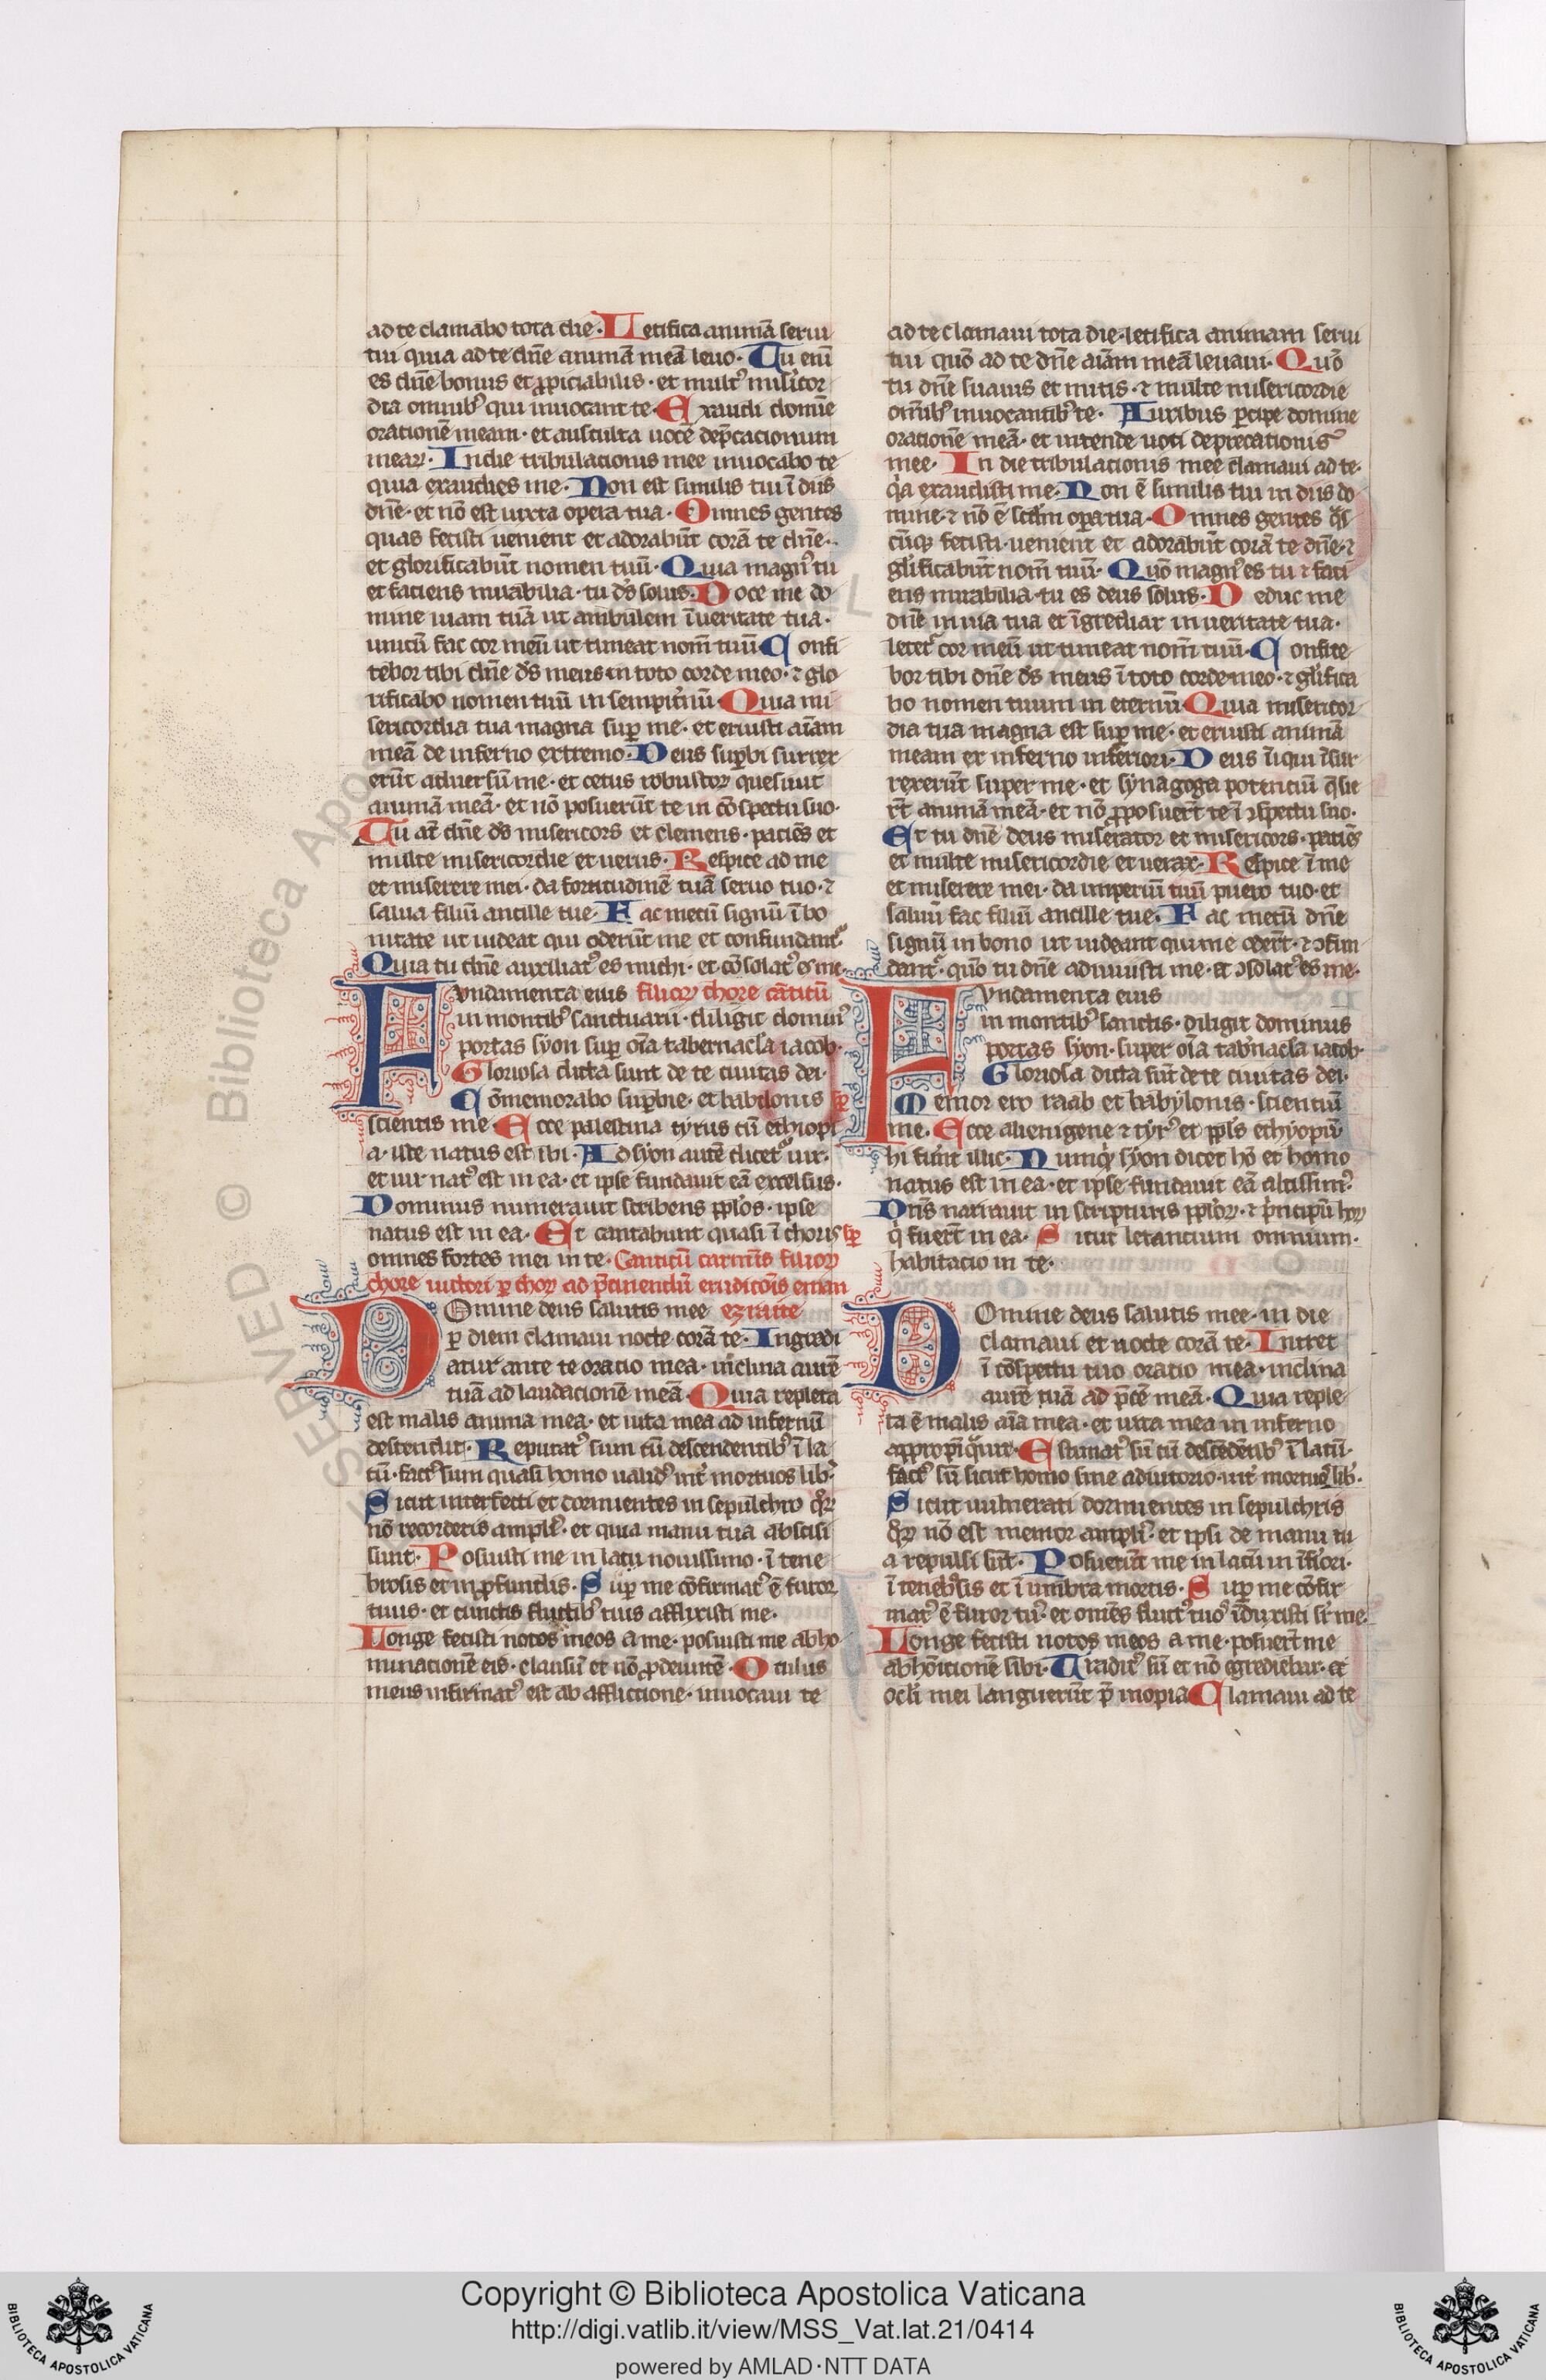 ad te clamabo tota die · Letifica animā serui
tui quia ad te dn̄e animā meā leuo · Tu eni᷑
es dn̄e bonus et ꝓpiciabilis · et multꝰ misicor
dia omnibꝰ qui inuocant te · Exaudi domine
orationē meam · et ausculta uocē dep̄cacionum
mearꝝ · In die tribulacionis mee inuocabo te
quia exaudies me · Non est similis tui ī diis
dn̄e · et nō est iuxta opera tua · Omnes gentes
quas fecisti uenient et adorabūt corā te dn̄e ·
et glorificabūt nomen tuū · Quia magnꝰ tu
et faciens mirabilia · tu ds̄ solus · Doce me do
mine uiam tuā ut ambulem ī ueritate tua ·
unicū fac cor meū ut timeat nom̄ tuū Confi
tebor tibi dn̄e ds̄ meus in toto corde meo · ⁊ glo
rificabo nomen tuū in sempit̄nū · Quia mi
sericordia tua magna suꝑ me · et eruisti aīam
meā de inferno extremo · Deus suꝑbi surrex
erūt aduersū me · et cetus robustorꝝ quesiuit
animā meā · et nō posuerūt te in cōspectu suo ·
Tu aūt dn̄e ds̄ misericors et clemens · paciēs et
multe misericordie et uerus · Respice ad me
et miserere mei · da fortitudinē tuā seruo tuo · ⁊
salua filiū ancille tue · Fac mecū signū ī bo
nitate ut uideat qui oderūt me et confundant᷑
Quia tu dn̄e auxiliatꝰ es michi · et cōsolatꝰ es me ·
Fundamenta eius filiorꝝ chore cāticū
in montibꝰ sanctuarii · diligit dominꝰ
portas syon suꝑ oīa tabernacl̄a iacob ·
Gloriosa dicta sunt de te ciuitas dei ·
Cōmemorabo suꝑbie · et babilonis
scientis me · Ecce palestina tyrus cū ethiopi
a · iste natus est ibi · Ad syon autē dicet᷑ uir ·
et uir natꝰ est in ea · et ipse fundauit eā excelsus ·
Dominus numerauit scribens ppl̄os · ipse
natus est in ea · Et cantabunt quasi ī choris
omnes fortes mei in te · Canticū carmīs filiorꝝ
chore uictori ꝑ chorꝝ ad p̄cinendū erudicōis eman
Domine deus salutis mee ezraite
ꝑ diem clamaui nocte corā te · Ingredi
atur ante te oratio mea · inclina aurē
tuā ad laudacionē meā · Quia repleta
est malis anima mea · et uita mea ad infernū
descendit · Reputatꝰ sum cū descendentibꝰ ī la
cū · factꝰ sum quasi homo ualidꝰ int̄ mortuos lib̄ ·
Sicut interfecti et dormientes in sepulchro qͦrꝝ
nō recorderis ampliꝰ · et quia manu tua abscisi
sunt · Posuisti me in lacu nouissimo · ī tene
brosis et in ꝓfundis · Suꝑ me cōfirmatꝰ ē furor
tuus · et cunctis fluctibꝰ tuis afflixisti me ·
Longe fecisti notos meos a me · posuisti me abho
minationē eis · clausū et nō ꝓdeuntē · Oculus
meus infirmatꝰ est ab afflictione · inuocaui te
ad te clamaui tota die · letifica animam serui
tui quō ad te dn̄e aīam meā leuaui · Quō
tu dn̄e suauis et mitis · ⁊ multe misericordie
om̄ibꝰ inuocantibꝰ te · Auribus ꝑcipe domine
orationē meā · et intende uoci deprecationis
mee · In die tribulacionis mee clamaui ad te ·
qa exaudisti me · Non ē similis tui in diis do
mine · ⁊ nō ē scd̄m oꝑa tua · Omnes gentes qͣs
cūqꝫ fecisti · uenient et adorabūt corā te dn̄e · ⁊
glificabūt nom̄ tuū · Quō magnꝰ es tu ⁊ faci
ens mirabilia · tu es deus solus · Deduc me
dn̄e in uia tua et īgrediar in ueritate tua ·
letet᷑ cor meū ut timeat nom̄ tuū · Confite
bor tibi dn̄e ds̄ meus ī toto corde meo · ⁊ glifica
bo nomen tuum in eternū Quia misericor
dia tua magna est suꝑ me · et eruisti animā
meam ex inferno inferiori · Deus īiqui īsur
rexerūt super me · et synagoga potenciū q̄sie
rt̄ animā meā · et nō ꝓposuer̄t te ī ꝯspectu suo ·
Et tu dn̄e deus miserator et misericors · paciēs
et multe misericordie et uerax · Respice ī me
et miserere mei · da imperiū tuū puero tuo · et
saluū fac filiū ancille tue · Fac mecū dn̄e
signū in bono ut uideant qui me oder̄t · ⁊ ꝯfun
dant᷑ · quō tu dn̄e adiuuisti me · et ꝯsolatꝰ es me ·
Fundamenta eius
in montibꝰ sanctis · diligit dominus
portas syon · super oīa tab̄nacl̄a iacob ·
Gloriosa dicta sūt de te ciuitas dei ·
Memor ero raab et babylonis · scientiū
me · Ecce alienigene ⁊ tyrꝰ et ppl̄s ethyopū
hi fūnt illic · Numqͥd syon dicet hō et homo
natus est in ea · et ipse fundauit eā altissimꝰ
Dn̄s narrauit in scripturis ppl̄orꝝ · ⁊ p̄ncipū horꝝ
q̇ fuer̄t in ea · Sicut letantium omnium ·
habitacio in te ·
Domine deus salutis mee · in die
clamaui et nocte corā te · Intret
ī cōspectu tuo oratio mea · inclina
aurē tuā ad p̄cē meā · Quia reple
ta ē malis aīa mea · et uita mea in inferno
appropīqͣuit · Estimatꝰ sū cū descēdētibꝰ ī lacū ·
factꝰ sū sicut homo sine adiutorio · int̄ mortuos lib̄ ·
Sicut uulnerati dormientes in sepulchris
qͦrꝝ nō est memor ampliꝰ · et ipsi de manu tu
a repulsi sūt · Posuerūt me in lacū in īfiori ·
ī tenebͦsis et ī umbra mortis · Suꝑ me cōfir
matꝰ ē furor tuꝰ · et omēs fluctꝰ tuoꝰ īduxisti sr̄ me
Longe fecisti notos meos a me · posuer̄t me
abhōicionē sibi · Traditꝰ sū et nō egrediebar · et
ocl̄i mei languerūt p̄ inopia Clamaui ad te
Copyright © Biblioteca Apostolica Vaticana
http://digi.vatlib.it/view/MSS_Vat.lat.21/0414
powered by AMLAD·NTT DATA
BIBLIOTECA APOSTOLICA VATICANA
BIBLIOTECA APOSTOLICA VATICANA